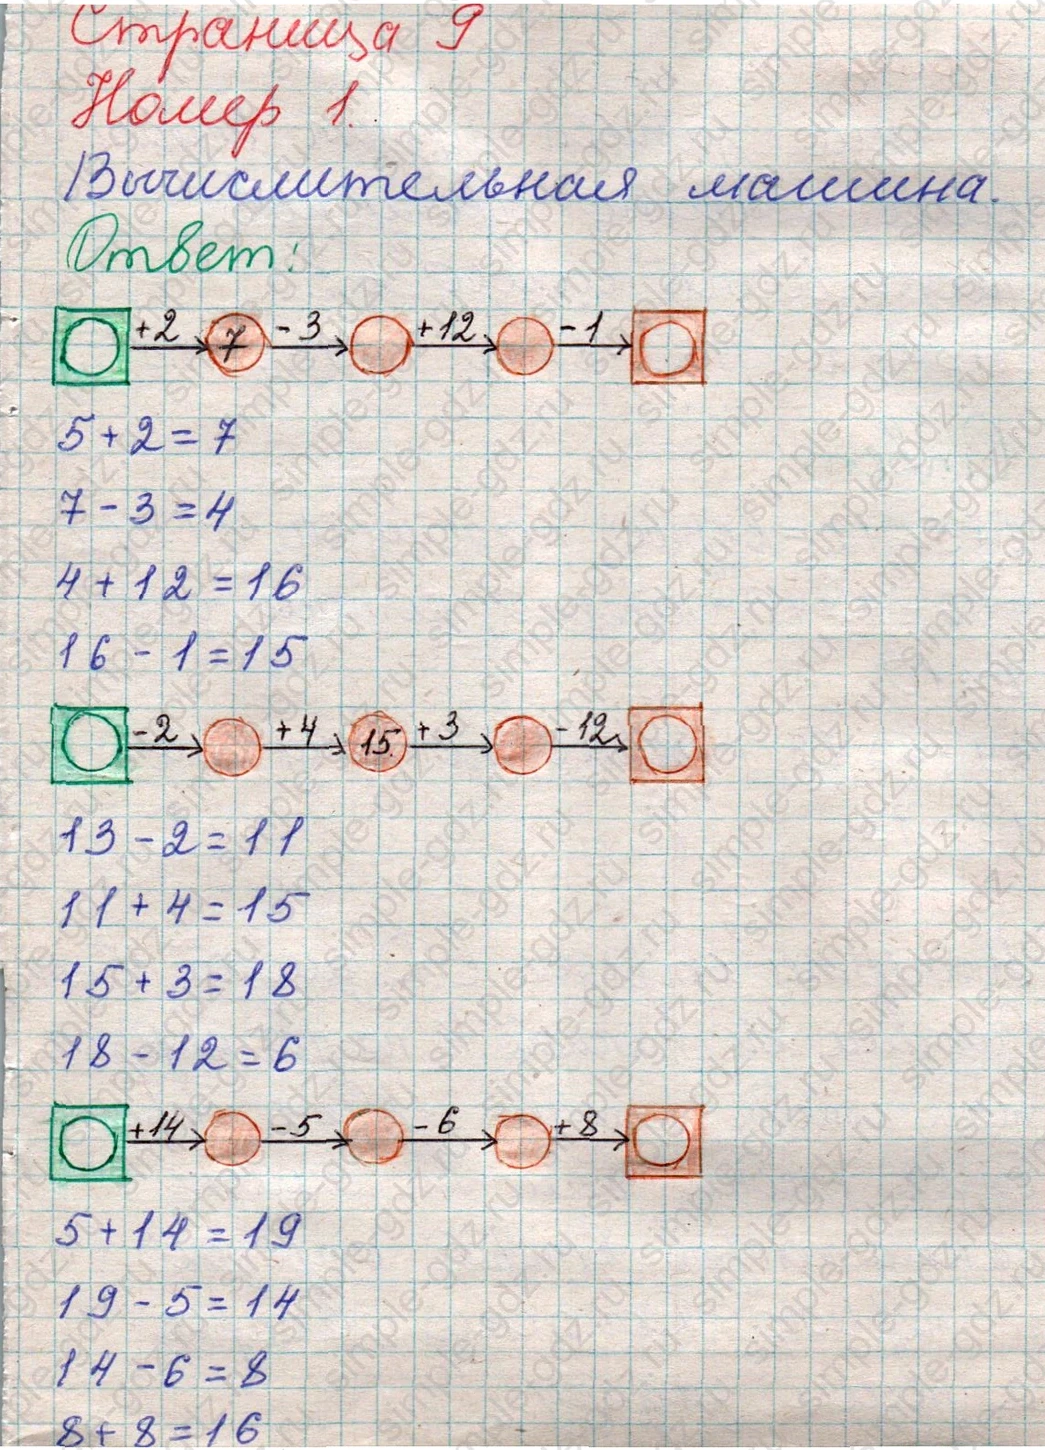 Страница 9
Номер 1.
Вычислительная машина.
Ответ:
+2 7 -3 +12 -1
5+2=7
7-3=4
4+12=16
16-1=15
-2 +4 15. +3 -12
13-2=11
11+4=15
15+3=18
18-12=6
+14 -5 -6 +8
5+14=19
19-5=14
14-6=8
8+8=16
simple-gdz.ru